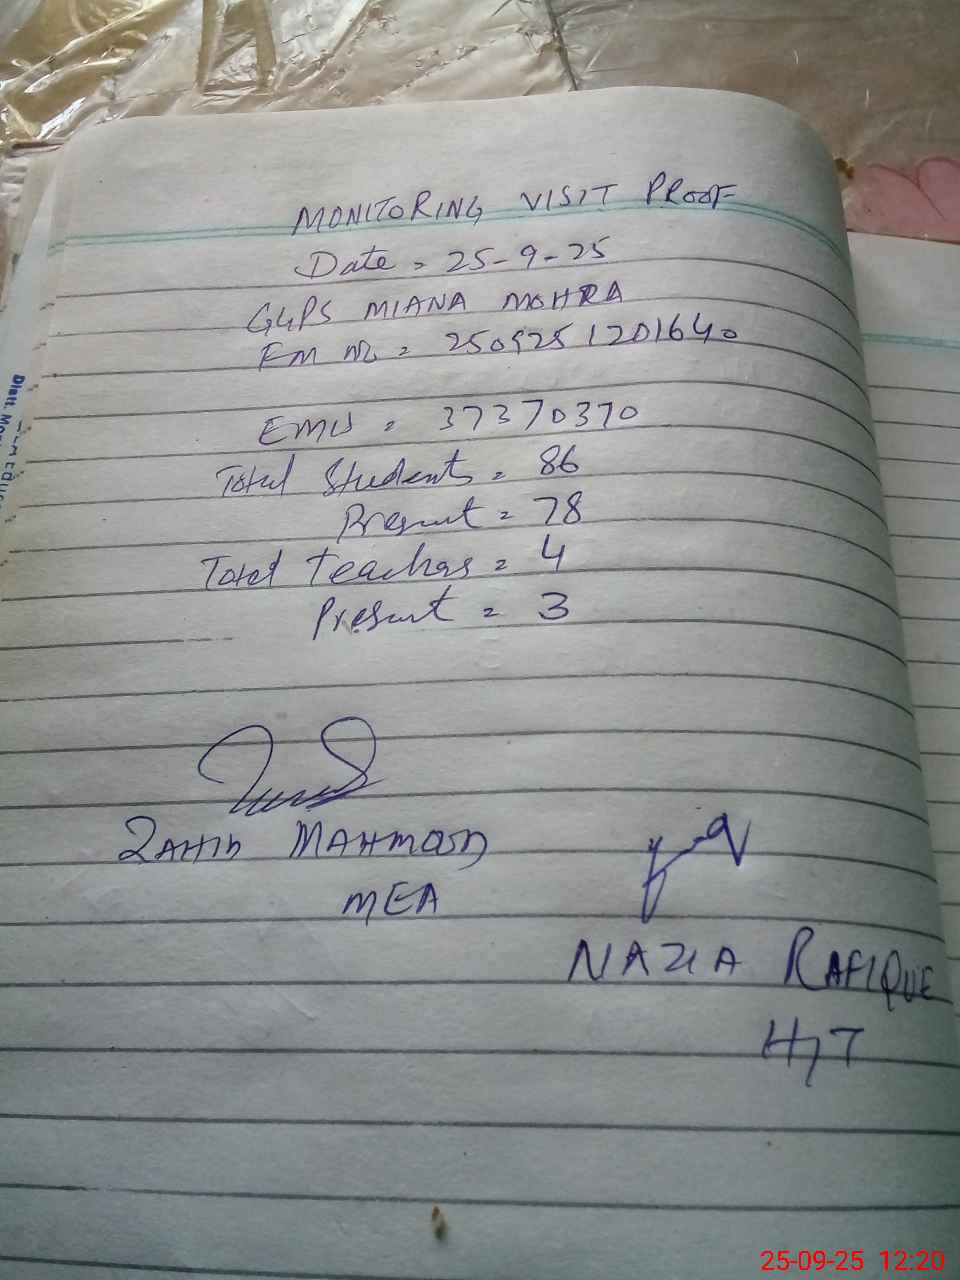 MONITORING VISIT PROOF
Date = 25-9-25
GGPS MIANA MOHRA
EM No = 2509251201640
EMIS = 37370370
Total Students = 86
Present = 78
Total Teachers = 4
Present = 3
ZAHID MAHMOOD
MEA
NAZIA RAFIQUE
H/T
25-09-25 12:20